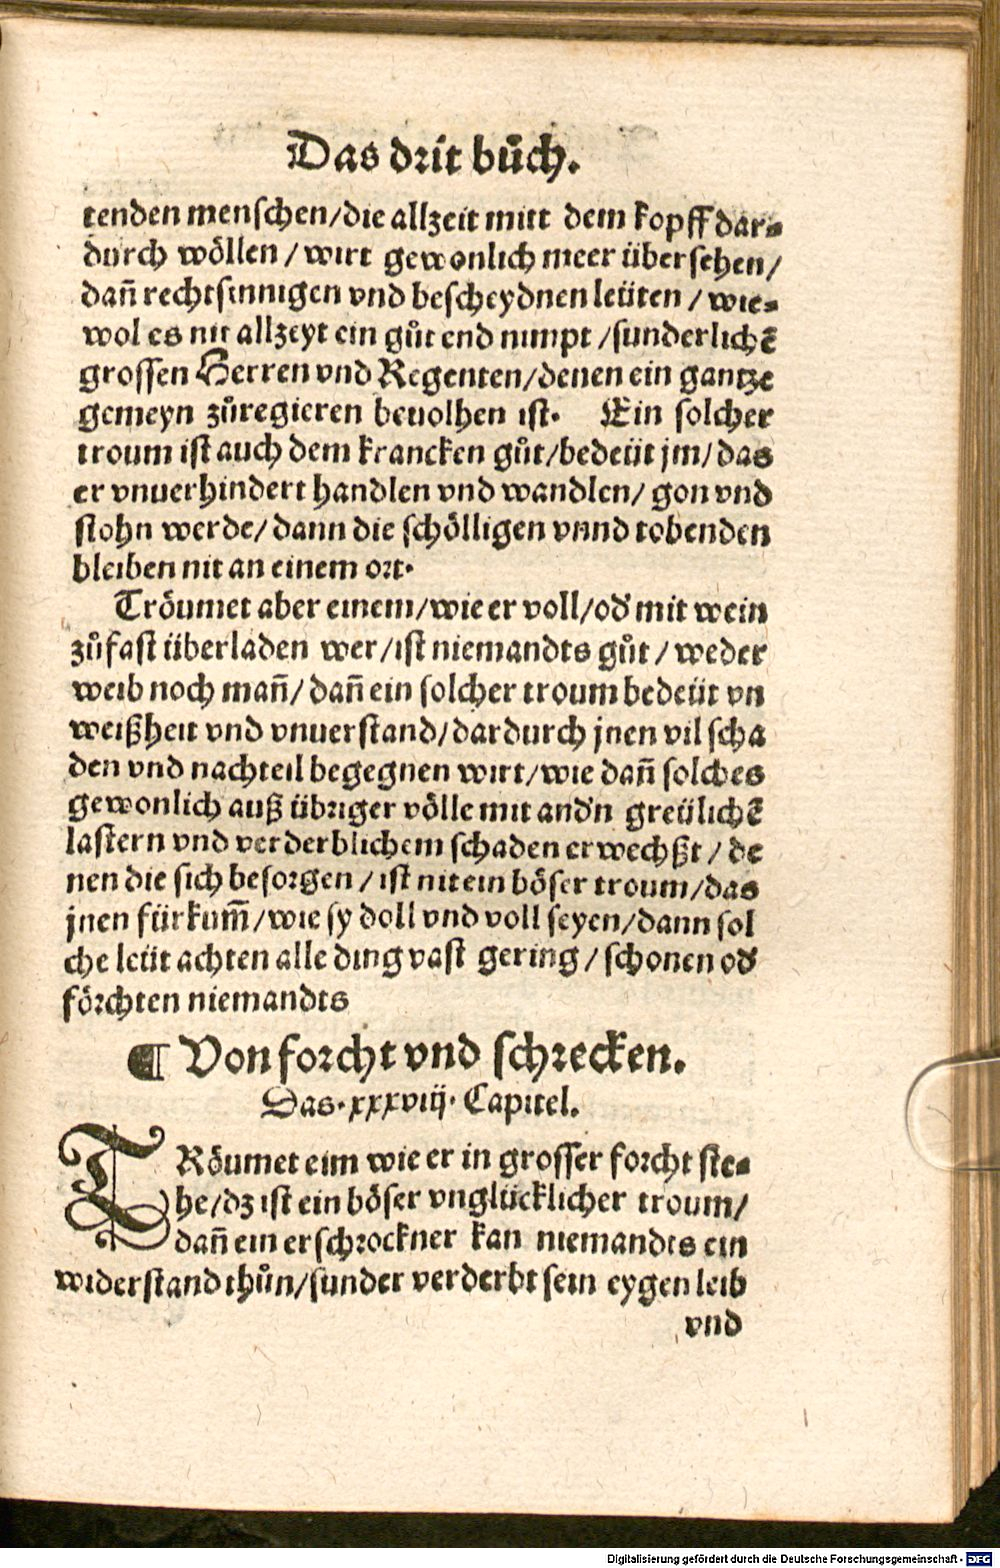 Das drit bůch.
tenden menschen/die allzeit mitt dem kopff dar-
durch wöllen / wirt gewonlich meer übersehen/
dañ rechtsinnigen vnd bescheydnen leüten / wie-
wol es nit allzeyt ein gůt end nimpt /sunderlichẽ
grossen Herren vnd Regenten/denen ein gantze
gemeyn zůregieren beuolhen ist. Ein solcher
troum ist auch dem krancken gůt/bedeüt jm/das
er vnuerhindert handlen vnd wandlen/ gon vnd
stohn werde/dann die schölligen vnnd tobenden
bleiben nit an einem ort.
Tröumet aber einem/wie er voll/od' mit wein
zůfast überladen wer/ist niemandts gůt / weder
weib noch mañ/ dañ ein solcher troum bedeüt vn
weißheit vnd vnuerstand/dardurch jnen vil scha
den vnd nachteil begegnen wirt/wie dañ solches
gewonlich auß übriger völle mit and'n greülichẽ
lastern vnd verderblichem schaden erwechßt / de
nen die sich besorgen / ist nit ein böser troum/das
jnen fürkum̃/wie sy doll vnd voll seyen/dann sol
che leüt achten alle ding vast gering / schonen od'
förchten niemandts
¶ Von forcht vnd schrecken.
Das.xxxviij. Capitel.
TRöumet eim wie er in grosser forcht ste-
he/dz ist ein böser vnglücklicher troum/
dañ ein erschrockner kan niemandts ein
widerstand thůn/sunder verderbt sein eygen leib
vnd
Digitalisierung gefördert durch die Deutsche Forschungsgemeinschaft - DFG